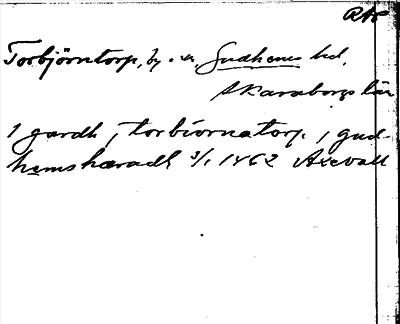 RAP
Torbjörntorp, by. o. sn, Gudhems hd,
Skaraborgs län
1 gardh j torbiornatorp j gud-
hemshæradh 3/1 1462 Axevall